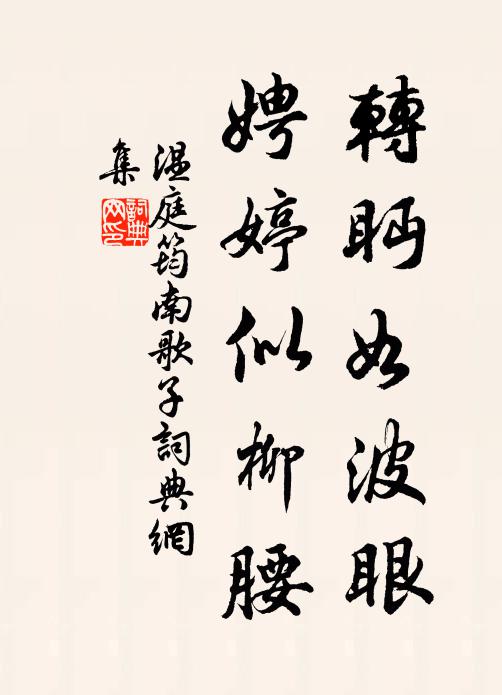 轉眄如波眼
娉婷似柳腰
温庭筠南歌子詞典網
集
詞典
网印